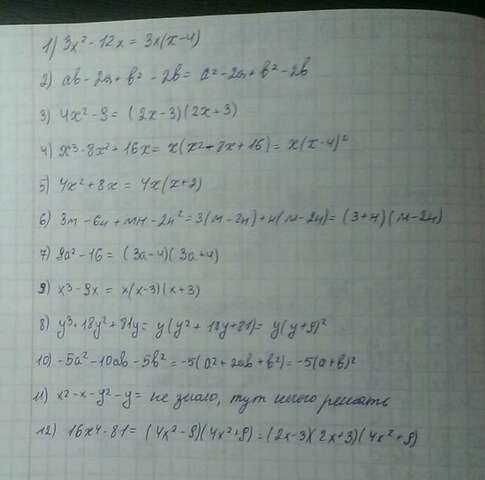 1) 3x² - 12x = 3x(x-4)
2) ab - 2a + b² - 2b = a² - 2a + b² - 2b
3) 4x² - 9 = (2x-3)(2x+3)
4) x³ - 8x² + 16x = x(x² - 8x + 16) = x(x-4)²
5) 4x² + 8x = 4x(x+2)
6) 3m - 6n + mn - 2n² = 3(m-2n) + n(m-2n) = (3+n)(m-2n)
7) 9a² - 16 = (3a-4)(3a+4)
9) x³ - 9x = x(x-3)(x+3)
8) y³ + 18y² + 81y = y(y² + 18y + 81) = y(y+9)²
10) -5a² - 10ab - 5b² = -5(a² + 2ab + b²) = -5(a+b)²
11) x² - x - y² - y = не знаю, тут нечего решать
12) 16x⁴ - 81 = (4x² - 9)(4x² + 9) = (2x-3)(2x+3)(4x² + 9)